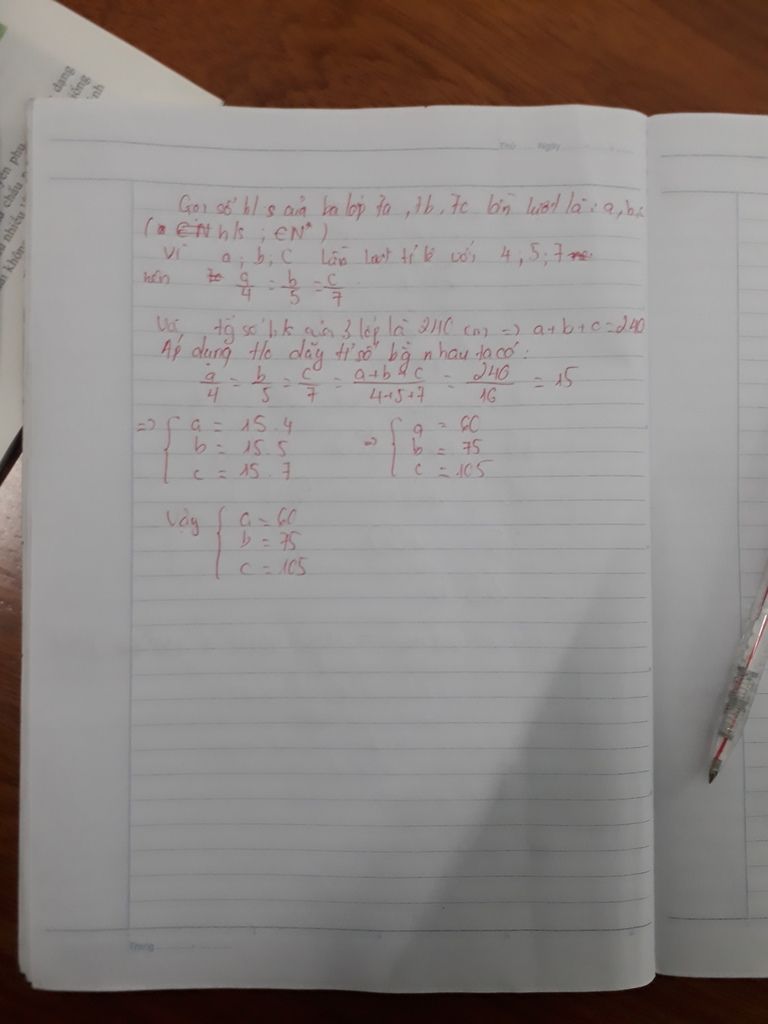 dạng
giống
nh
Thứ Ngày
Gọi số h/s của ba lớp 7a, 7b, 7c lần lượt là: a, b, c
( h/s ; ∈N* )
Vì a; b; c lần lượt tỉ lệ với 4; 5; 7
nên a/4 = b/5 = c/7
tg số h/s của 3 lớp là 240 => a+b+c=240
Áp dụng t/c dãy tỉ số bg nhau ta có:
a/4 = b/5 = c/7 = a+b+c/4+5+7 = 240/16 = 15
=> { a = 15.4 => { a = 60
b = 15.5 b = 75
c = 15.7 c = 105
Vậy { a = 60
b = 75
c = 105
Trang